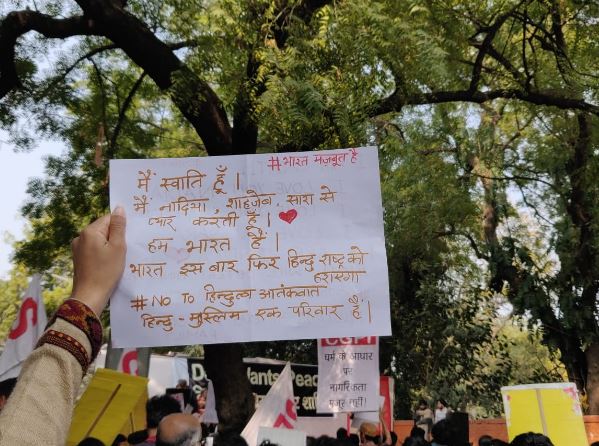 #भारत मज़बूत है
मैं स्वाति हूँ।
मैं नादिया, शाहज़ेब, सारा से
प्यार करती हूँ। ❤
हम भारत हैं।
भारत इस बार फिर हिन्दु राष्ट्र को
हराएगा
# NO TO हिन्दुत्व आतंकवात
हिन्दु - मुस्लिम एक परिवार हैं।
धर्म के आधार
पर
नागरिकता
मंज़ूर नहीं!
ants Peac